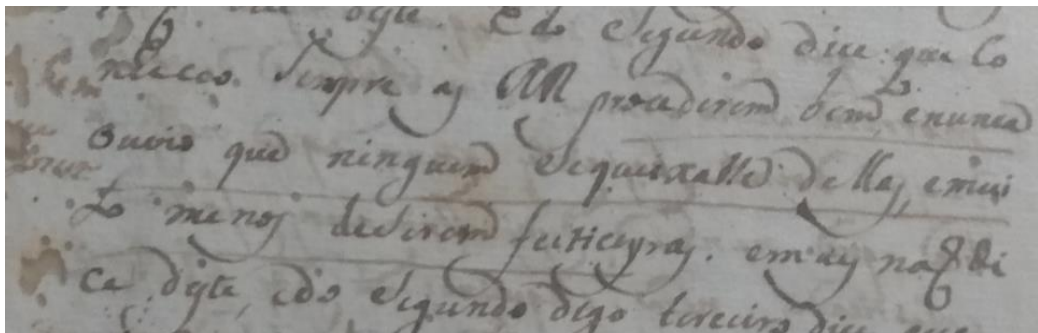 diste. E do segundo dice que co
nheceo sempre as RR procederem bem, e nunca
ouvio que ninguem se queixasse dellas, e mui
to menos de serem feiticeyras. e mais nao di
ce deste, e do segundo digo terceiro dice que